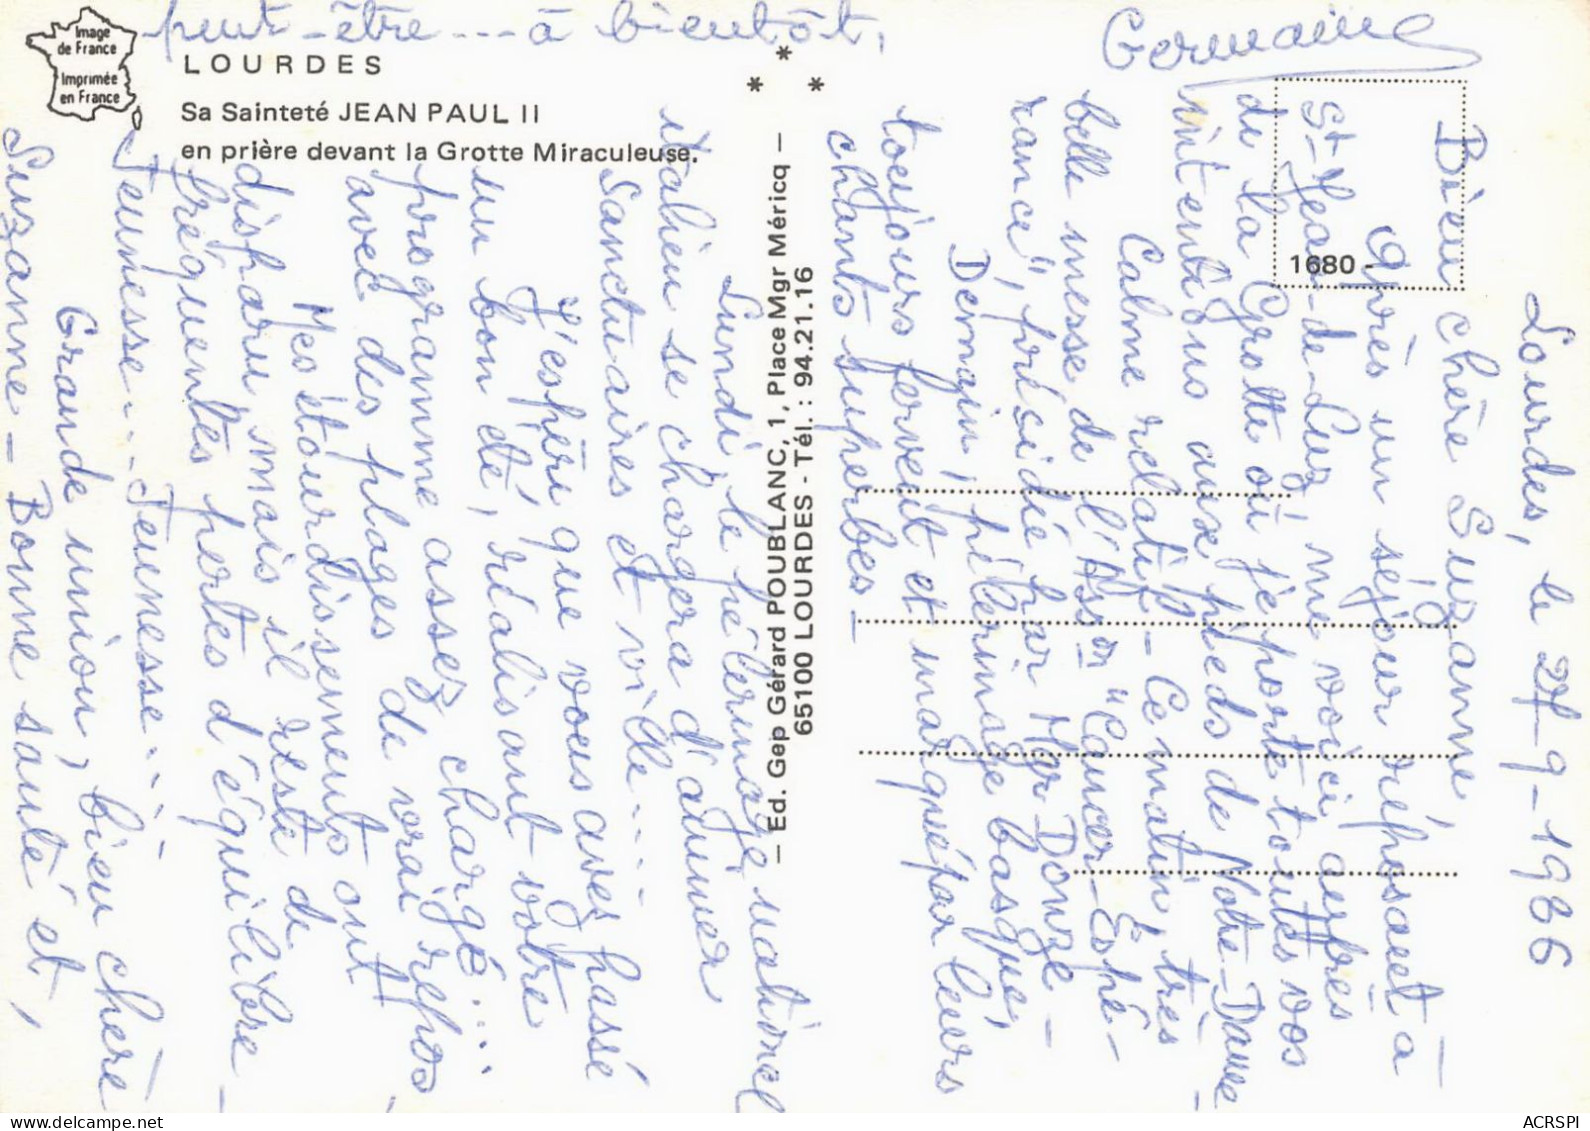 Image
de France
Imprimée
en France
LOURDES
Sa Sainteté JEAN PAUL II
en prière devant la Grotte Miraculeuse.
*
* *
— Ed. Gep Gérard POUBLANC, 1, Place Mgr Méricq —
65100 LOURDES - Tél. : 94.21.16
1680 -
Lourdes, le 27-9-1986
Bien chère Suzanne,
Après un séjour reposant à
St-Jean-de-Luz, me voici auprès
de la Grotte où je porte toutes vos
intentions aux pieds de Notre-Dame -
Calme relatif - Ce matin, très
belle messe de l'Asson "Cancer-Espé-
rance", présidée par Mgr Donze -
Demain, pèlerinage basque,
toujours fervent et marqué par leurs
chants superbes -
Lundi, le pèlerinage national
italien se chargera d'animer
Sanctuaires et ville....
J'espère que vous avez passé
un bon été, réalisant votre
programme assez chargé....
avec des plages de vrai repos.
Mes étourdissements ont
disparu mais il reste de
fréquentes pertes d'équilibre -
Jeunesse... Jeunesse....!
Grande union, bien chère
Suzanne - Bonne santé et,
peut-être... à bientôt.
Germaine
ACRSPI